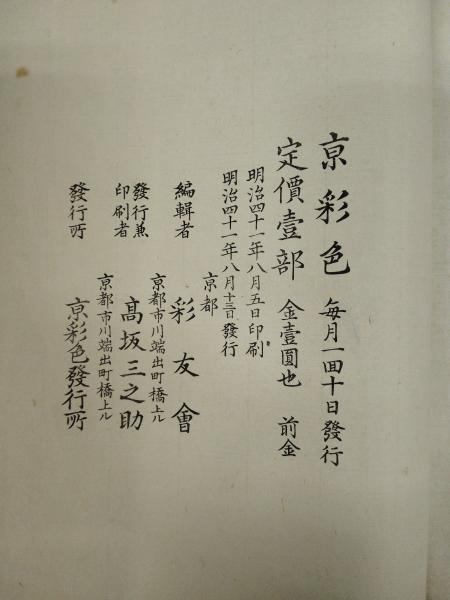 京彩色 毎月一回十日發行
定價壹部 金壹圓也 前金
明治四十一年八月五日印刷
明治四十一年八月十三日發行
編輯者 京都 彩友會
京都市川端出町橋上ル
發行兼印刷者 髙坂三之助
京都市川端出町橋上ル
發行所 京彩色發行所